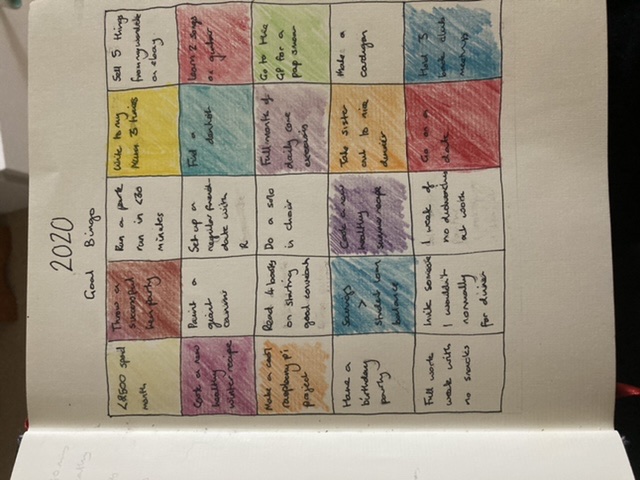 2020
Goal Bingo
<£500 spend
month
Throw a
successful
hen party
Run a park
run in <30
minutes
Write to my
Nana 3 times
Sell 5 things
from my wardrobe
on ebay
Cook a new
healthy
winter recipe
Paint a
giant
canvas
Set up a
regular friend
date with
R
Find a
dentist
Learn 2 songs
on guitar
Make a cool
raspberry pi
project
Read 4 books
on starting
good
Do a solo
in choir
Full month of
daily core
exercises
Go to the
GP for a
pap smear
Have a
birthday
party
Savings
>
student loan
balance
Cook a new
healthy
summer recipe
Take sister
out to nice
dinner
Make a
cardigan
Full work
week with
no snacks
Invite someone
I wouldn't
normally
for dinner
1 week of
no
at work
Go on a
date
Host 3
book club
meetings